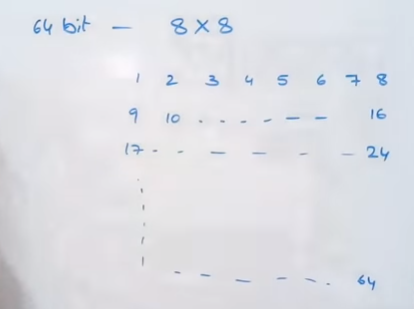 64 bit — 8 × 8
1 2 3 4 5 6 7 8
9 10 . - - - — — 16
17 - - — — - — 24
- - — - - . 64